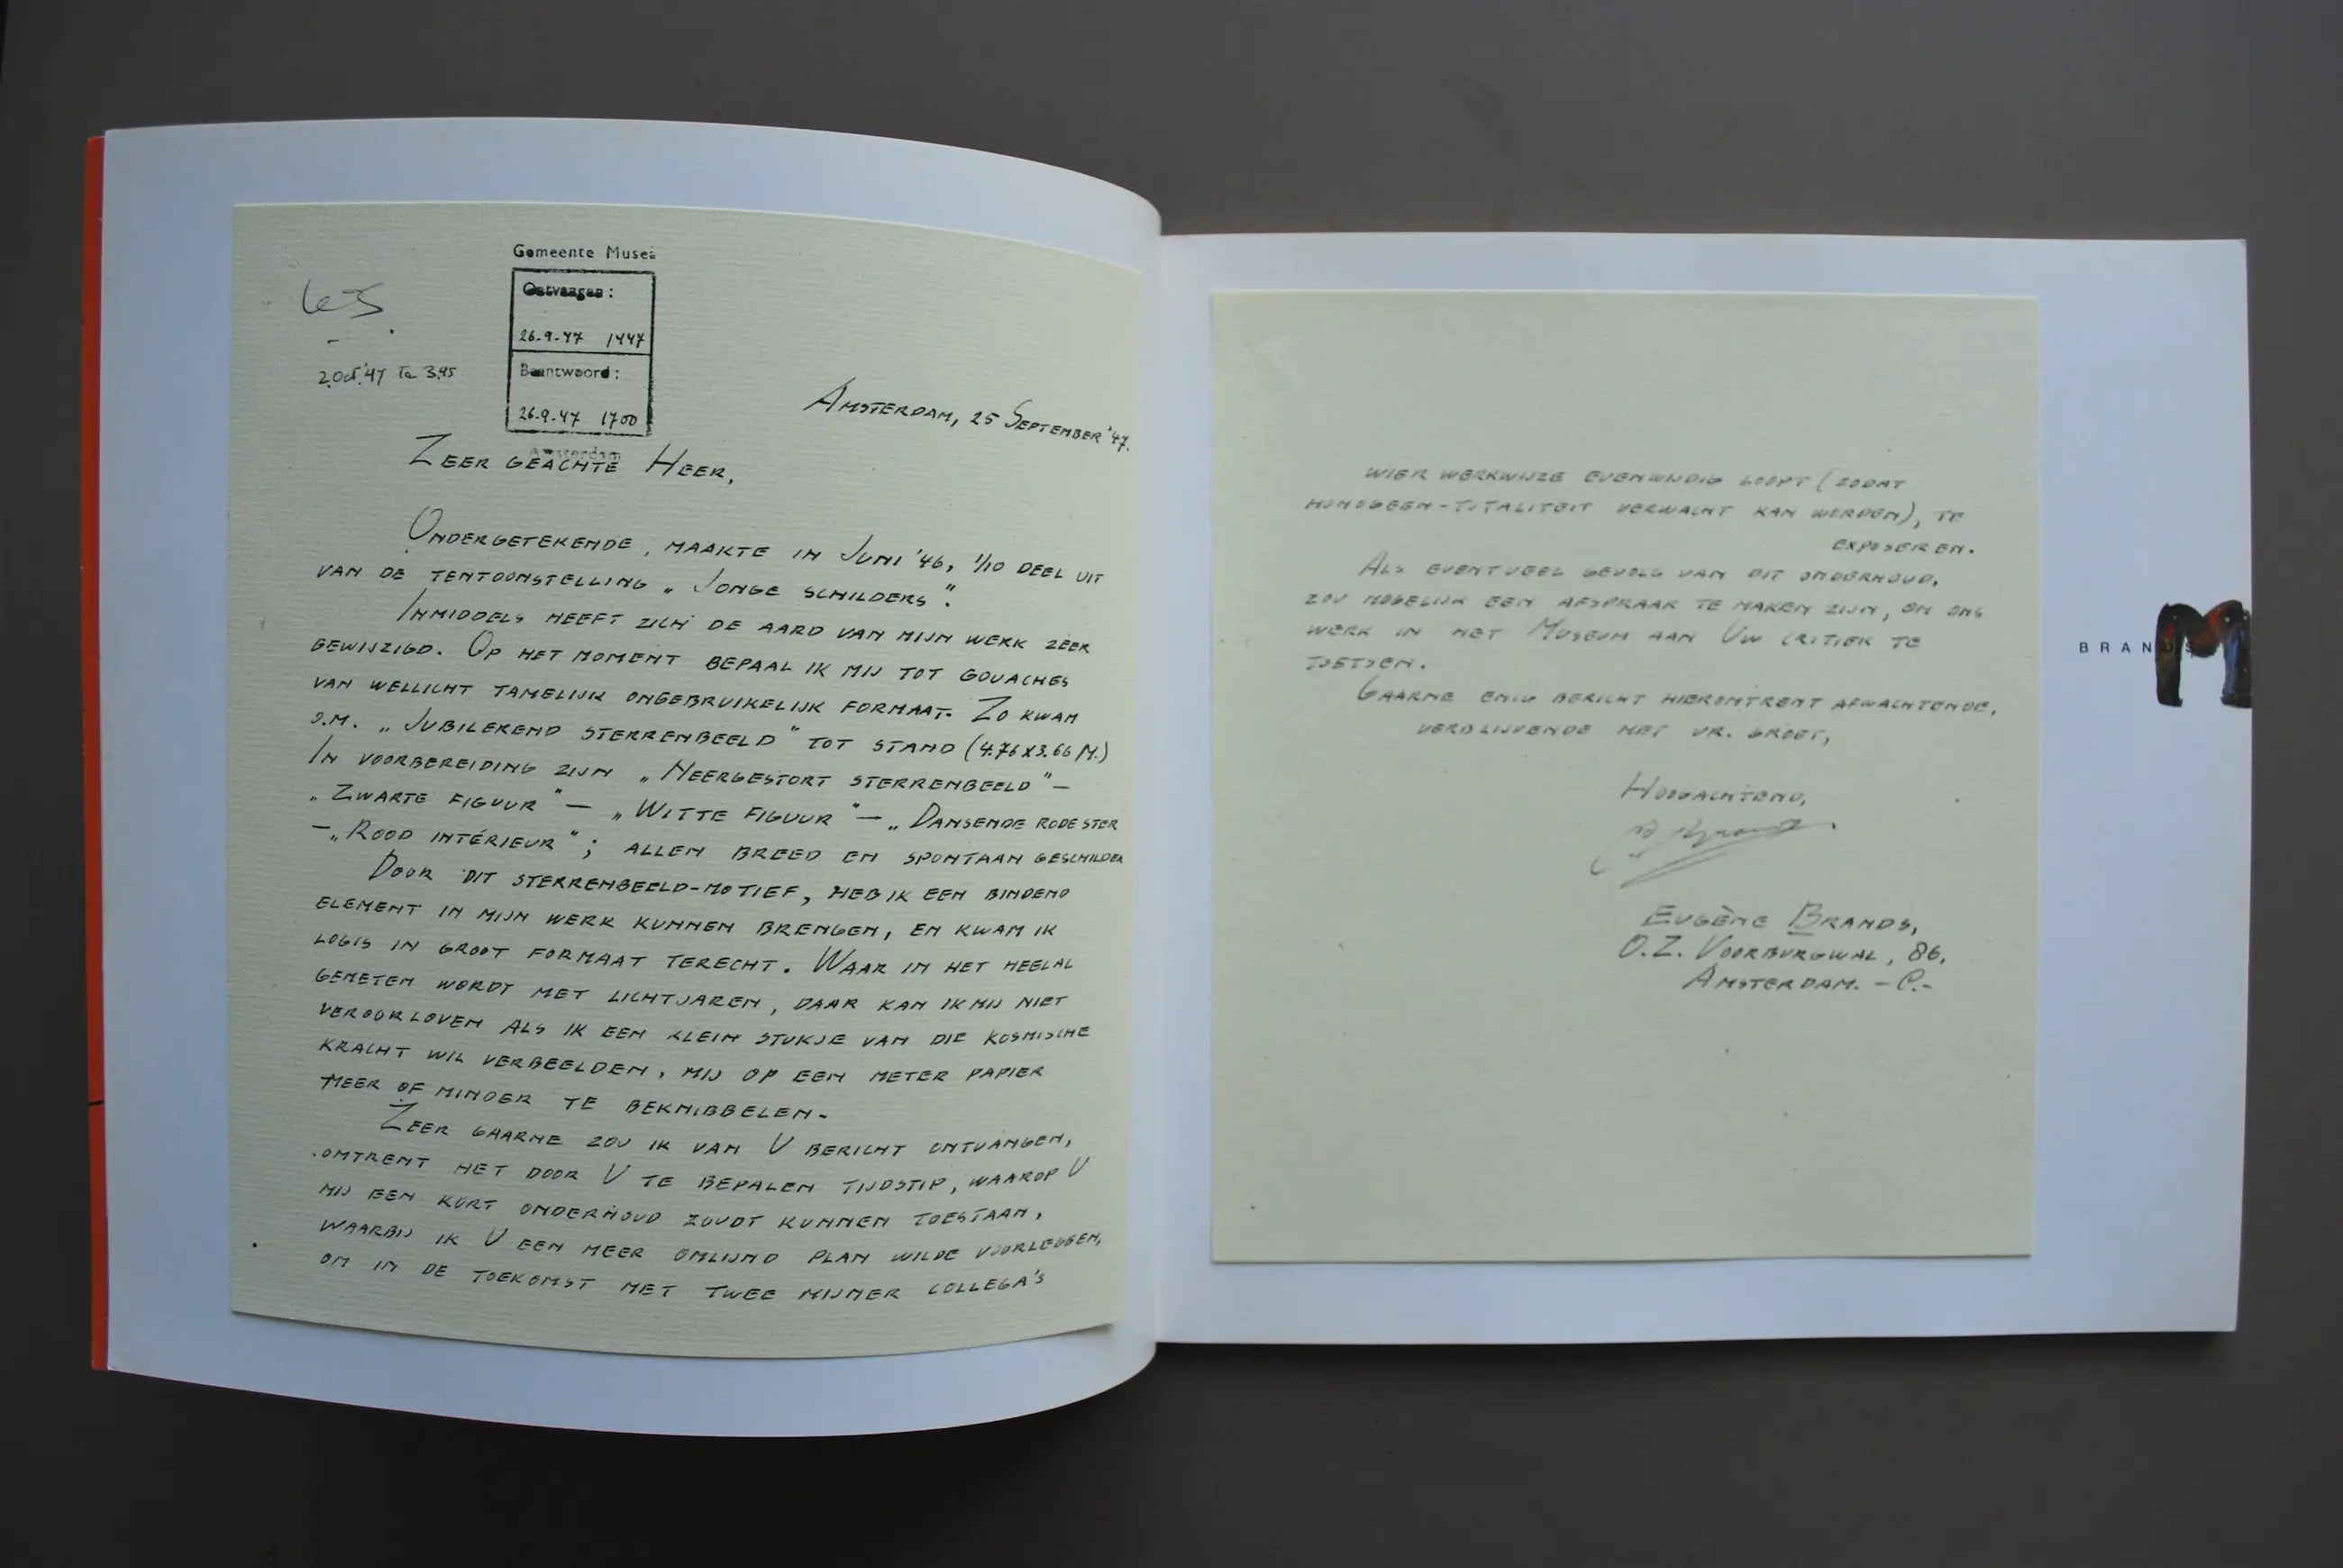 Gemeente Musea
Ontvangen:
26-9-47 1447
Beantwoord:
26-9-47 1700
Amsterdam
2 Oct. '47 te 3.45
AMSTERDAM, 25 SEPTEMBER '47.
ZEER GEACHTE HEER,
ONDERGETEKENDE, MAAKTE IN JUNI '46, 1/10 DEEL UIT
VAN DE TENTOONSTELLING „JONGE SCHILDERS".
INMIDDELS HEEFT ZICH DE AARD VAN MIJN WERK ZEER
GEWIJZIGD. OP HET MOMENT BEPAAL IK MIJ TOT GOUACHES
VAN WELLICHT TAMELIJK ONGEBRUIKELIJK FORMAAT. ZO KWAM
O.M. „JUBILEREND STERRENBEELD" TOT STAND (4.76 X 3.66 M.)
IN VOORBEREIDING ZIJN „NEERGESTORT STERRENBEELD" —
„ZWARTE FIGUUR" — „WITTE FIGUUR" — „DANSENDE RODE STER
— „ROOD INTÉRIEUR"; ALLEN BREED EN SPONTAAN GESCHILDER
DOOR DIT STERRENBEELD-MOTIEF, HEB IK EEN BINDEND
ELEMENT IN MIJN WERK KUNNEN BRENGEN, EN KWAM IK
LOGIS IN GROOT FORMAAT TERECHT. WAAR IN HET HEELAL
GEMETEN WORDT MET LICHTJAREN, DAAR KAN IK MIJ NIET
VEROORLOVEN ALS IK EEN KLEIN STUKJE VAN DIE KOSMISCHE
KRACHT WIL VERBEELDEN, MIJ OP EEN METER PAPIER
MEER OF MINDER TE BEKNIBBELEN.
ZEER GAARNE ZOU IK VAN U BERICHT ONTVANGEN,
OMTRENT HET DOOR U TE BEPALEN TIJDSTIP, WAAROP U
MIJ EEN KORT ONDERHOUD ZOUDT KUNNEN TOESTAAN,
WAARBIJ IK U EEN MEER OMLIJND PLAN WILDE VOORLEGGEN,
OM IN DE TOEKOMST MET TWEE MIJNER COLLEGA'S
WIER WERKWIJZE EVENWIJDIG LOOPT (ZODAT
HOMOGEEN-TOTALITEIT VERWACHT KAN WORDEN), TE
EXPOSEREN.
ALS EVENTUEEL GEVOLG VAN DIT ONDERHOUD,
ZOU MOGELIJK EEN AFSPRAAK TE MAKEN ZIJN, OM ONS
WERK IN HET MUSEUM AAN UW CRITIEK TE
TOETSEN.
GAARNE ENIG BERICHT HIEROMTRENT AFWACHTENDE,
VERBLIJVENDE MET VR. GROET,
HOOGACHTEND,
EUGÈNE BRANDS,
O.Z. VOORBURGWAL, 86,
AMSTERDAM. - C.-
BRANDS
M